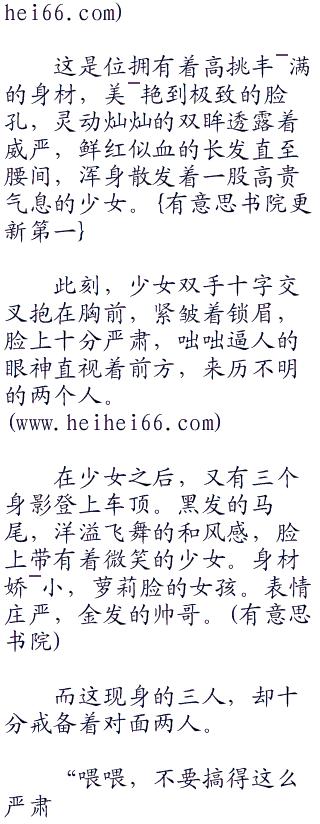 hei66.com)
这是位拥有着高挑丰¯满
的身材，美¯艳到极致的脸
孔，灵动灿灿的双眸透露着
威严，鲜红似血的长发直至
腰间，浑身散发着一股高贵
气息的少女。{有意思书院更
新第一}
此刻，少女双手十字交
叉抱在胸前，紧皱着锁眉，
脸上十分严肃，咄咄逼人的
眼神直视着前方，来历不明
的两个人。
(www.heihei66.com)
在少女之后，又有三个
身影登上车顶。黑发的马
尾，洋溢飞舞的和风感，脸
上带有着微笑的少女。身材
娇¯小，萝莉脸的女孩。表情
庄严，金发的帅哥。(有意思
书院)
而这现身的三人，却十
分戒备着对面两人。
“喂喂，不要搞得这么
严肃